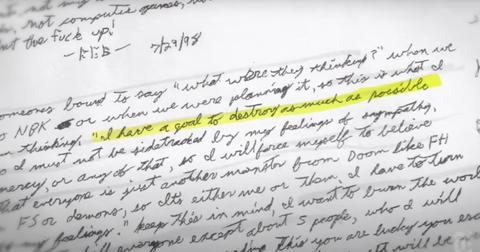 I not my
, not computer games, n
ut the fuck up!
7/29/98
omeones bound to say "what were they thinking?" when we
o NBK or when we were planning it, so this is what I
thinking. "I have a goal to destroy as much as possible
o I must not be sidetracked by my feelings of sympathy,
mercy, or any of that, so I will force myself to believe
that everyone is just another monster from Doom like FH
FS or demons, so Its either me or them. I have to turn
my feelings." keep this in mind, I want to burn the worl
ill everyone except about 5 people, who I will
ding this you are lucky you esc
it will be